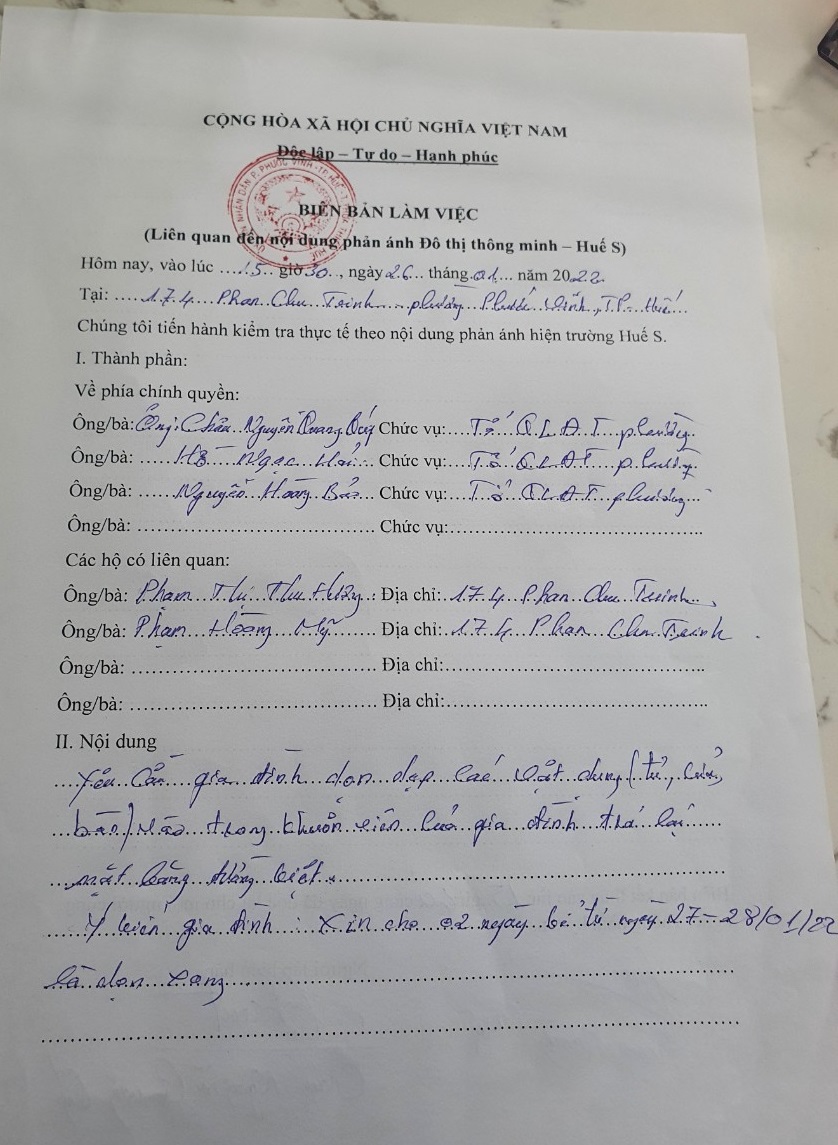 CỘNG HÒA XÃ HỘI CHỦ NGHĨA VIỆT NAM
Độc lập – Tự do – Hạnh phúc
BIÊN BẢN LÀM VIỆC
(Liên quan đến nội dung phản ánh Đô thị thông minh – Huế S)
Hôm nay, vào lúc ....15.. giờ 30.., ngày 26.. tháng 01... năm 2022
Tại: ....174...Phan..Chu..Trinh....phường...Phước Vĩnh, T.P. Huế...
Chúng tôi tiến hành kiểm tra thực tế theo nội dung phản ánh hiện trường Huế S.
I. Thành phần:
Về phía chính quyền:
Ông/bà: Ông: Châu Nguyễn Quang Chức vụ:... Tổ QLĐT phường
Ông/bà: ..... Hồ Ngọc Hải... Chức vụ:... Tổ QLĐT phường
Ông/bà: ..... Nguyễn Hoàng Bảo... Chức vụ:... Tổ QLĐT phường...
Ông/bà: .................................... Chức vụ:......................................
Các hộ có liên quan:
Ông/bà: Phạm Thị Thu Hằng Địa chỉ: 174 Phan Chu Trinh
Ông/bà: Phạm Hoàng Mỹ Địa chỉ: 174 Phan Chu Trinh
Ông/bà: ..................................... Địa chỉ:.......................................
Ông/bà: ..................................... Địa chỉ:.......................................
II. Nội dung
... Yêu cầu gia đình dọn dẹp các vật dụng (tủ,
vào trong khuôn viên của gia đình trả lại
mặt bằng
Ý kiến gia đình : Xin cho 02 ngày kể từ ngày 27 – 28/01/22
là dọn xong